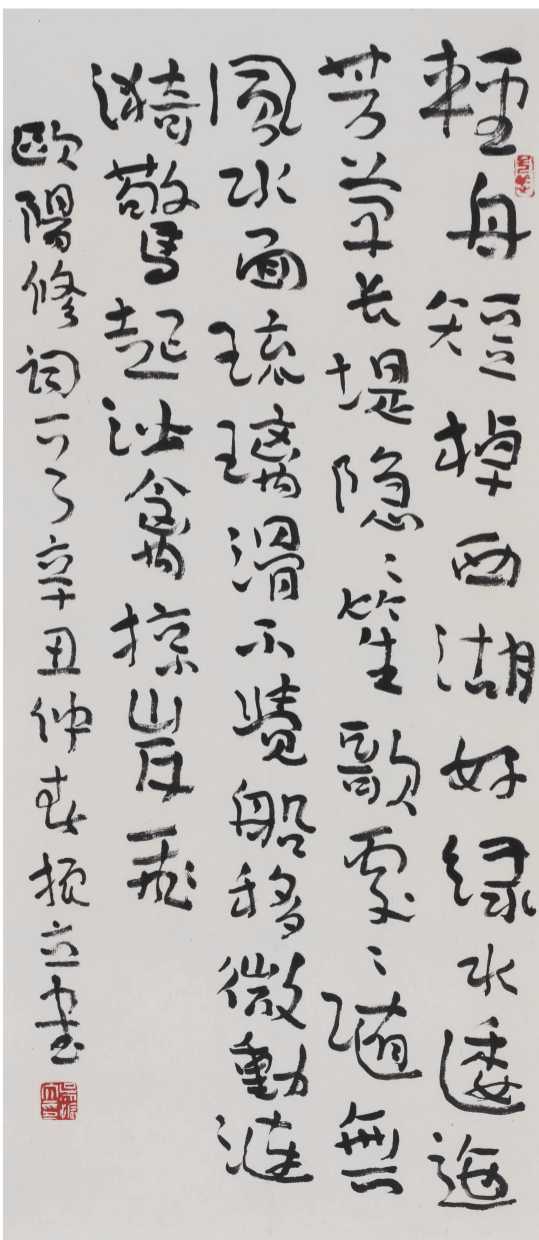 輕舟短棹西湖好绿水逶迤
芳草长堤隐〻笙歌處〻随無
風水面琉璃滑不覺船移微動漣
漪驚起沙禽掠岸飛
歐陽修詞一首辛丑仲春振立書